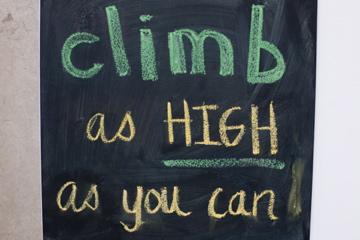 climb
as HIGH
as you can